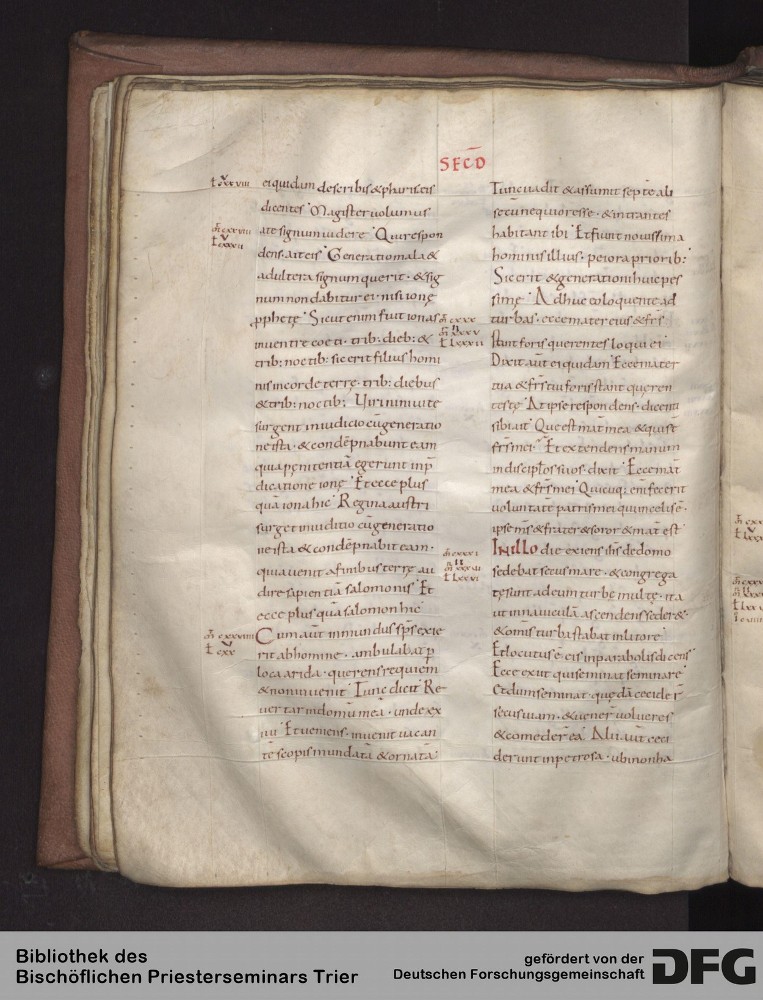 SECD
ei quidam de scribis & phariseis
dicentes Magister uolumus
a te signum uidere Qui respon
dens. ait eis Generatio mala &
adultera signum querit. & sig
num non dabitur ei. nisi ionę
pphetę Sicut enim fuit ionas
in uentre coeti. trib: dieb: &
trib: noctib: sic erit filius homi
nis in corde terrę. trib: diebus
& trib: noctib: Uiri niniuite
surgent in iudicio cū generatio
ne ista. & condēpnabunt eam
quia pęnitentiā egerunt in p̄
dicatione ionę Et ecce plus
quā iona hic Regina austri
surget in iuditio cū generatio
ne ista & condēpnabit eam.
quia uenit a finibus terrę au
dire sapientiā salomonis Et
ecce plus quā salomon hic
Cum aūt inmundus sp̄s exie
rit ab homine. ambulat p
loca arida. querens requiem
& non inuenit Tunc dicit Re
uertar in domū meā. unde ex
iui Et ueniens. inuenit uacan
tē scopis mundatā & ornatā
Tunc uadit & assumit septē ali
os secū nequiores se. & intrantes
habitant ibi Et fiunt nouissima
hominis illius. peiora priorib:
Sic erit & generationi huic pes
simę Adhuc eo loquente ad
turbas. ecce mater eius & frs̄
stant foris querentes loqui ei
Dixit aūt ei quidam Ecce mater
tua & frs̄ tui foris stant queren
tes te At ipse respondens. dicenti
sibi ait Que est mat̄ mea & qui st̄
frs̄ mei Et extendens manum
in discip̄los suos. dixit Ecce mat̄
mea & frs̄ mei Quicuq: enī fecerit
uoluntatē patris mei qui in celis ē.
ipse ms̄ & frater & soror & mat̄ est
IN illo die exiens ihs̄ de domo
sedebat secus mare. & congrega
tę sunt ad eum turbę multę. ita
ut in nauiculā ascendens seder&.
& omīs turba stabat in litore
Et locutus ē eis in parabolis dicens
Ecce exiit qui seminat seminare
Et dum seminat. quędā cecider̄
secus uiam. & uener̄ uolucres
& comeder̄ ea Alii aūt ceci
derunt in petrosa. ubi non ha
Bibliothek des
Bischöflichen Priesterseminars Trier
gefördert von der
Deutschen Forschungsgemeinschaft
DFG